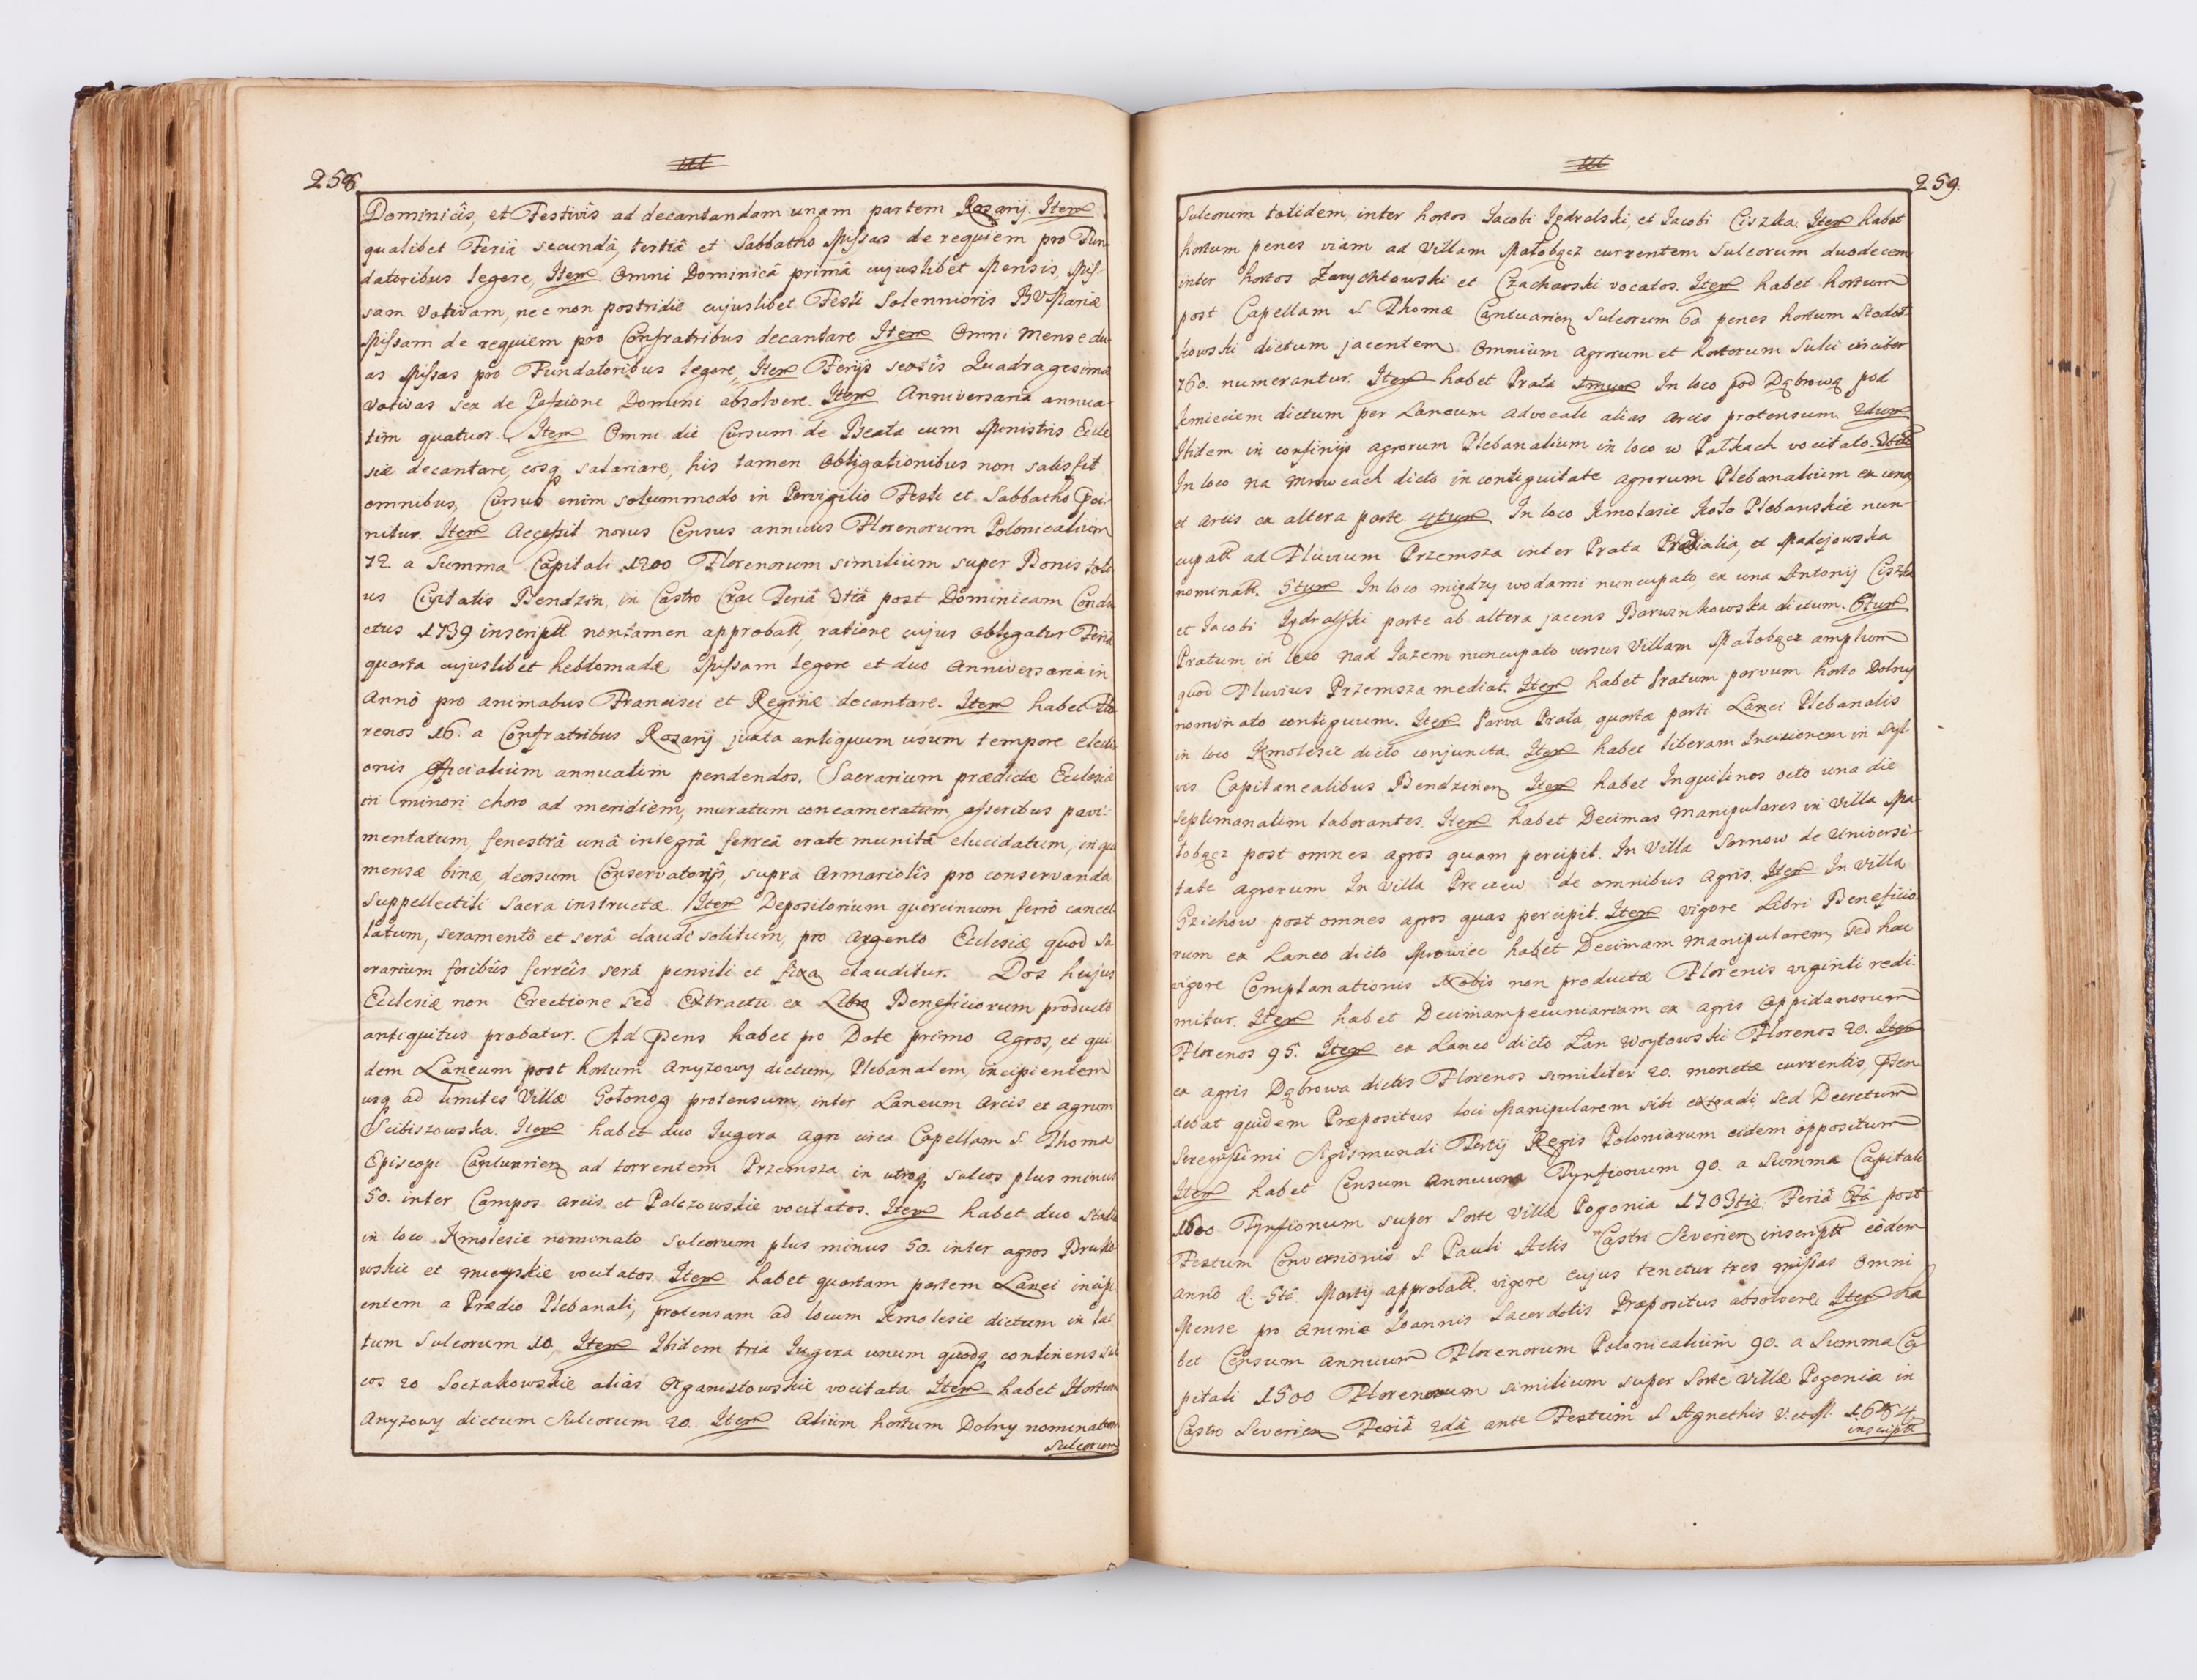 258
Dominicis, et Festivis ad decantandam unam partem Rozarij. Item
qualibet Feriâ secundâ, tertiâ et Sabbatho Missas de requiem pro Fun
datoribus legere, Item Omni Dominicâ primâ cujuslibet Mensis, Mis-
sam Votivam, nec non postridie cujuslibet Festi Solennioris BVMariæ
Missam de requiem pro Confratribus decantare Item Omni Mense du
as Missas pro Fundatoribus legere, Item Ferijs sextis Quadragesimæ
Votivas sex de Passione Domini absolvere. Item Anniversaria annua-
tim quatuor. Item Omni die Cursum de Beata cum Ministris Eccle
siæ decantare, eosq salariare, his tamen Obligationibus non satisfit
omnibus, Cursus enim solummodo in Pervigilio Festi et Sabbatho
nitur. Item Accessit novus Census annuus Florenorum Polonicalium
72 a Summa Capitali 1200 Florenorum similium super Bonis toti
us Civitatis Bendzin, in Castro Crac Feriâ 3tiâ post Dominicam Condu
ctus 1739 inscriptt non tamen approbatt, ratione cujus obligatur Feriâ
quarta cujuslibet hebdomadæ Missam legere et duo Anniversaria in
Annô pro animabus Francisci et Reginæ decantare. Item habet Flo
renos 16. a Confratribus Rozarij juxta antiquum usum tempore electi
onis Officialium annuatim pendendos. Sacrarium prædictæ Ecclesiæ
in minori choro ad meridiem, muratum concameratum, asseribus pavi-
mentatum, fenestrâ unâ integrâ ferreâ crate munitâ elucidatum, in quo
mensæ binæ, deorsum Conservatorijs, supra Armariolîs pro conservanda
suppellectili Sacra instructæ. Item Depositorium quercinum ferrô cancel
latum, seramentô et serâ claudi solitum, pro Argento Ecclesiæ, quod Sa
crarium foribûs ferreîs serâ pensili et fixa clauditur. Dos hujus
Ecclesiæ non Erectione sed Extractu ex Libro Beneficiorum producto
antiquitus probatur. Ad Pens habet pro Dote primo Agros, et qui
dem Laneum post hortum Anyzowy dictum, Plebanalem, incipientem
usq ad limites Villæ Gołonog protensum, inter Laneum Arcis et agrum
Scibiszowska. Item habet duo Iugera Agri circa Capellam S. Thoma
Episcopi Cantuarien ad torrentem Przemsza in utroq sulcos plus minus
50. inter Campos Arcis et Palczowskie vocitatos. Item habet duo
in loco Kmolesie nominato sulcorum plus minus 50. inter agros Bruko
wskie et Mieyskie vocitatos. Item habet quartam partem Lanei incipi
entem a Prædio Plebanali, protensam ad locum Kmolesie dictum in la
tum Sulcorum 10, Item Ibidem tria Iugera unum quodq continens sul
cos 20 Soczakowskie aliàs Organistowskie vocitata Item habet Hortum
Anyzowy dictum Sulcorum 20. Item Alium hortum Dolny nominatum
Sulcorum
259.
Sulcorum totidem, inter hortos Iacobi Iędralski, et Iacobi Ciszka. Item habet
hortum penes viam ad Villam Małobącz currentem Sulcorum duodecem
inter hortos Zarychtowski et Czachowski vocatos. Item habet hortum
post Capellam S Thomæ Cantuarien Sulcorum 60 penes hortum
kowski dictum jacentem. Omnium Agrorum et hortorum Sulci circiter
760. numerantur. Item habet Prata 1mum In loco pod Dąbrową pod
dictum per Laneum Advocati alias Arcis protensum. 2dum
Ibidem in confinijs agrorum Plebanalium in loco w Pałkach vocitato.
In loco na dicto in contiguitate agrorum Plebanalium ex una
et Arcis ex altera parte. 4tum In loco Kmolasie Koło Plebanskie nun-
cupatt ad Fluvium Przemsza inter Prata Prædialia, et Madejowska
nominatt. 5tum In loco między wodami nuncupato, ex una Antonij Ciszka
et Iacobi Iędralski parte ab altera jacens Barwinkowska dictum. 6tum
Pratum in loco nad Iazem nuncupato versus Villam Małobącz amplum
quod Fluvius Przemsza mediat. Item habet pratum parvum horto Dolny
nominato contiguum. Item Parva Prata, quartæ parti Lanei Plebanalis
in loco Kmolesie dicto conjuncta. Item habet liberam Incisionem in Syl
vis Capitanealibus Bendzinen Item habet Inquilinos octo una die
septimanatim laborantes. Item habet Decimas Manipulares in Villa Ma-
łobącz post omnes agros quam percipit. In Villa Sarnow de Universi-
tate Agrorum In Villa de omnibus Agris. Item In Villa
Gzichow post omnes agros quas percipit. Item vigore Libri Beneficio
rum ex Laneo dicto habet Decimam Manipularem, sed hac
vigore Complanationis Nobis non productæ Florenis viginti redi-
mitur. Item habet Decimam pecuniariam ex Agris Oppidanorum
Florenos 95. Item ex Laneo dicto Łan Woytowski Florenos 20. Item
ex agris Dąbrowa dictis Florenos similiter 20. monetæ currentis,
debat quidem Præpositus loci Manipularem sibi extradi, sed Decretum
Serenissimi Sigismundi Tertij Regis Poloniarum eidem oppositum
Item habet Censum Annuum Tynfionum 90. a Summa Capitali
1600 Tynfionum super Sorte Villæ Pogonia 1703tio. Feriâ 6tâ post
Festum Conversionis S. Pauli Actis Castri Severien inscriptt eôdem
annô d. 5tâ Martij approbatt. vigore cujus tenetur tres missas Omni
Mense pro Anima Ioannis Sacerdotis Præpositus absolvere Item ha
bet Censum Annuum Florenorum Polonicalium 90. a Summa Ca
pitali 1500 Florenorum similium super Sorte Villæ Pogonia in
Castro Severien Feriâ 2dâ ante Festum S Agnethis V. et M. 1684
inscriptt